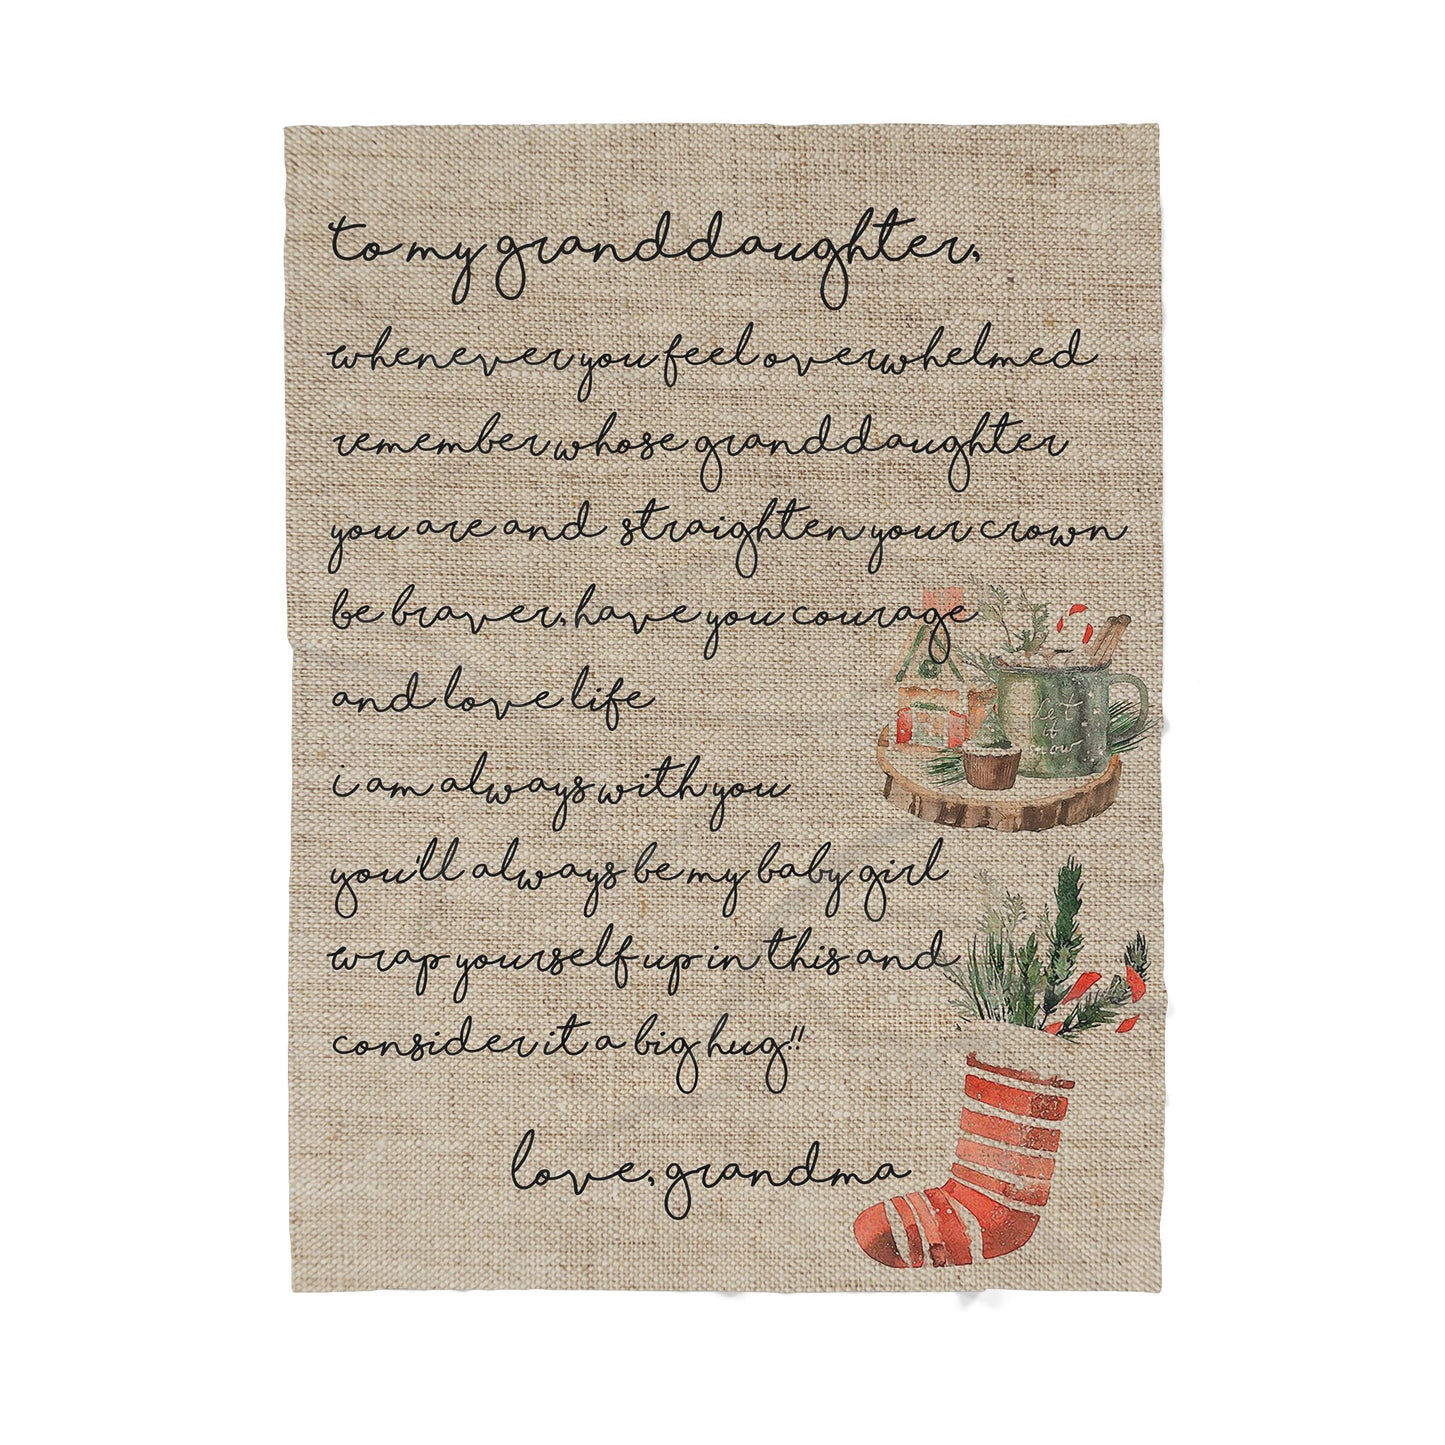 to my granddaughter,
whenever you feel overwhelmed
remember whose granddaughter
you are and straighten your crown
be braver, have you courage
and love life
i am always with you
you'll always be my baby girl
wrap yourself up in this and
consider it a big hug!!
love, grandma
Let
it
snow